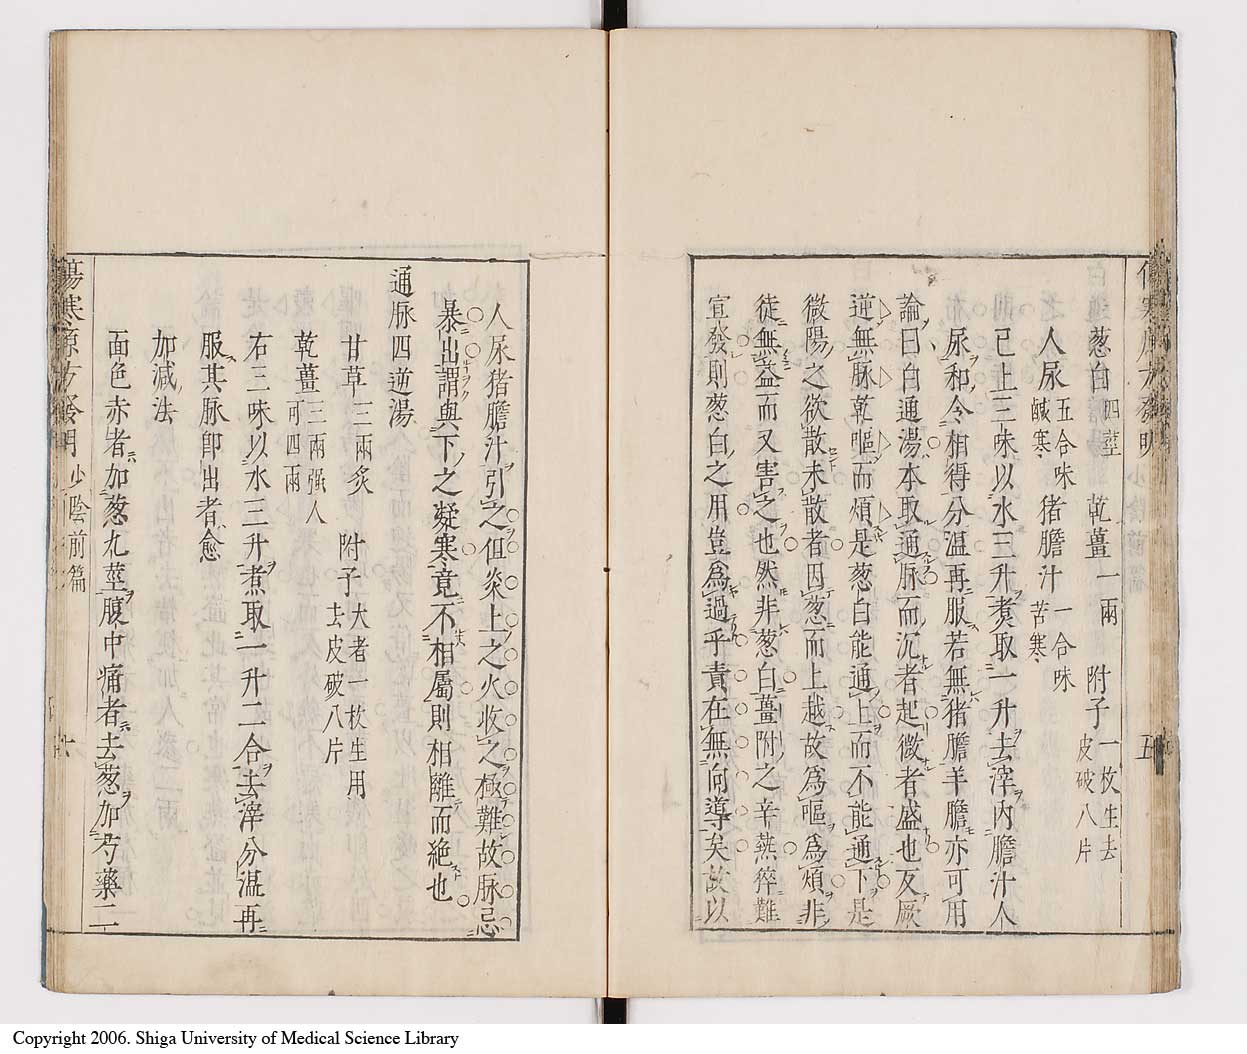 葱白四莖　乾薑一兩　附子一枚生去皮破八片
人尿五合味鹹寒　猪膽汁一合味苦寒
已上三味以水三升煑取一升去滓內膽汁人
尿和令相得分溫再服若無猪膽羊膽亦可用
論曰白通湯本取通脉而沉者起微者盛也反厥
逆無脉乾嘔而煩是葱白能通上而不能通下是
微陽之欲散未散者因葱而上越故爲嘔爲煩非
徒無益而又害之也然非葱白薑附之辛𤍠猝難
宣發則葱白之用豈爲過乎責在無向導矣故以
人尿猪膽汁引之但炎上之火收之極難故脉忌
暴出謂與下之凝寒竟不相屬則相離而絕也
通脉四逆湯
甘草二兩炙　附子大者一枚生用去皮破八片
乾薑三兩强人可四兩
右三味以水三升煮取一升二合去滓分溫再
服其脉卽出者愈
加減法
面色赤者加葱九莖腹中痛者去葱加芍藥二
少陰前篇
六
Copyright 2006. Shiga University of Medical Science Library